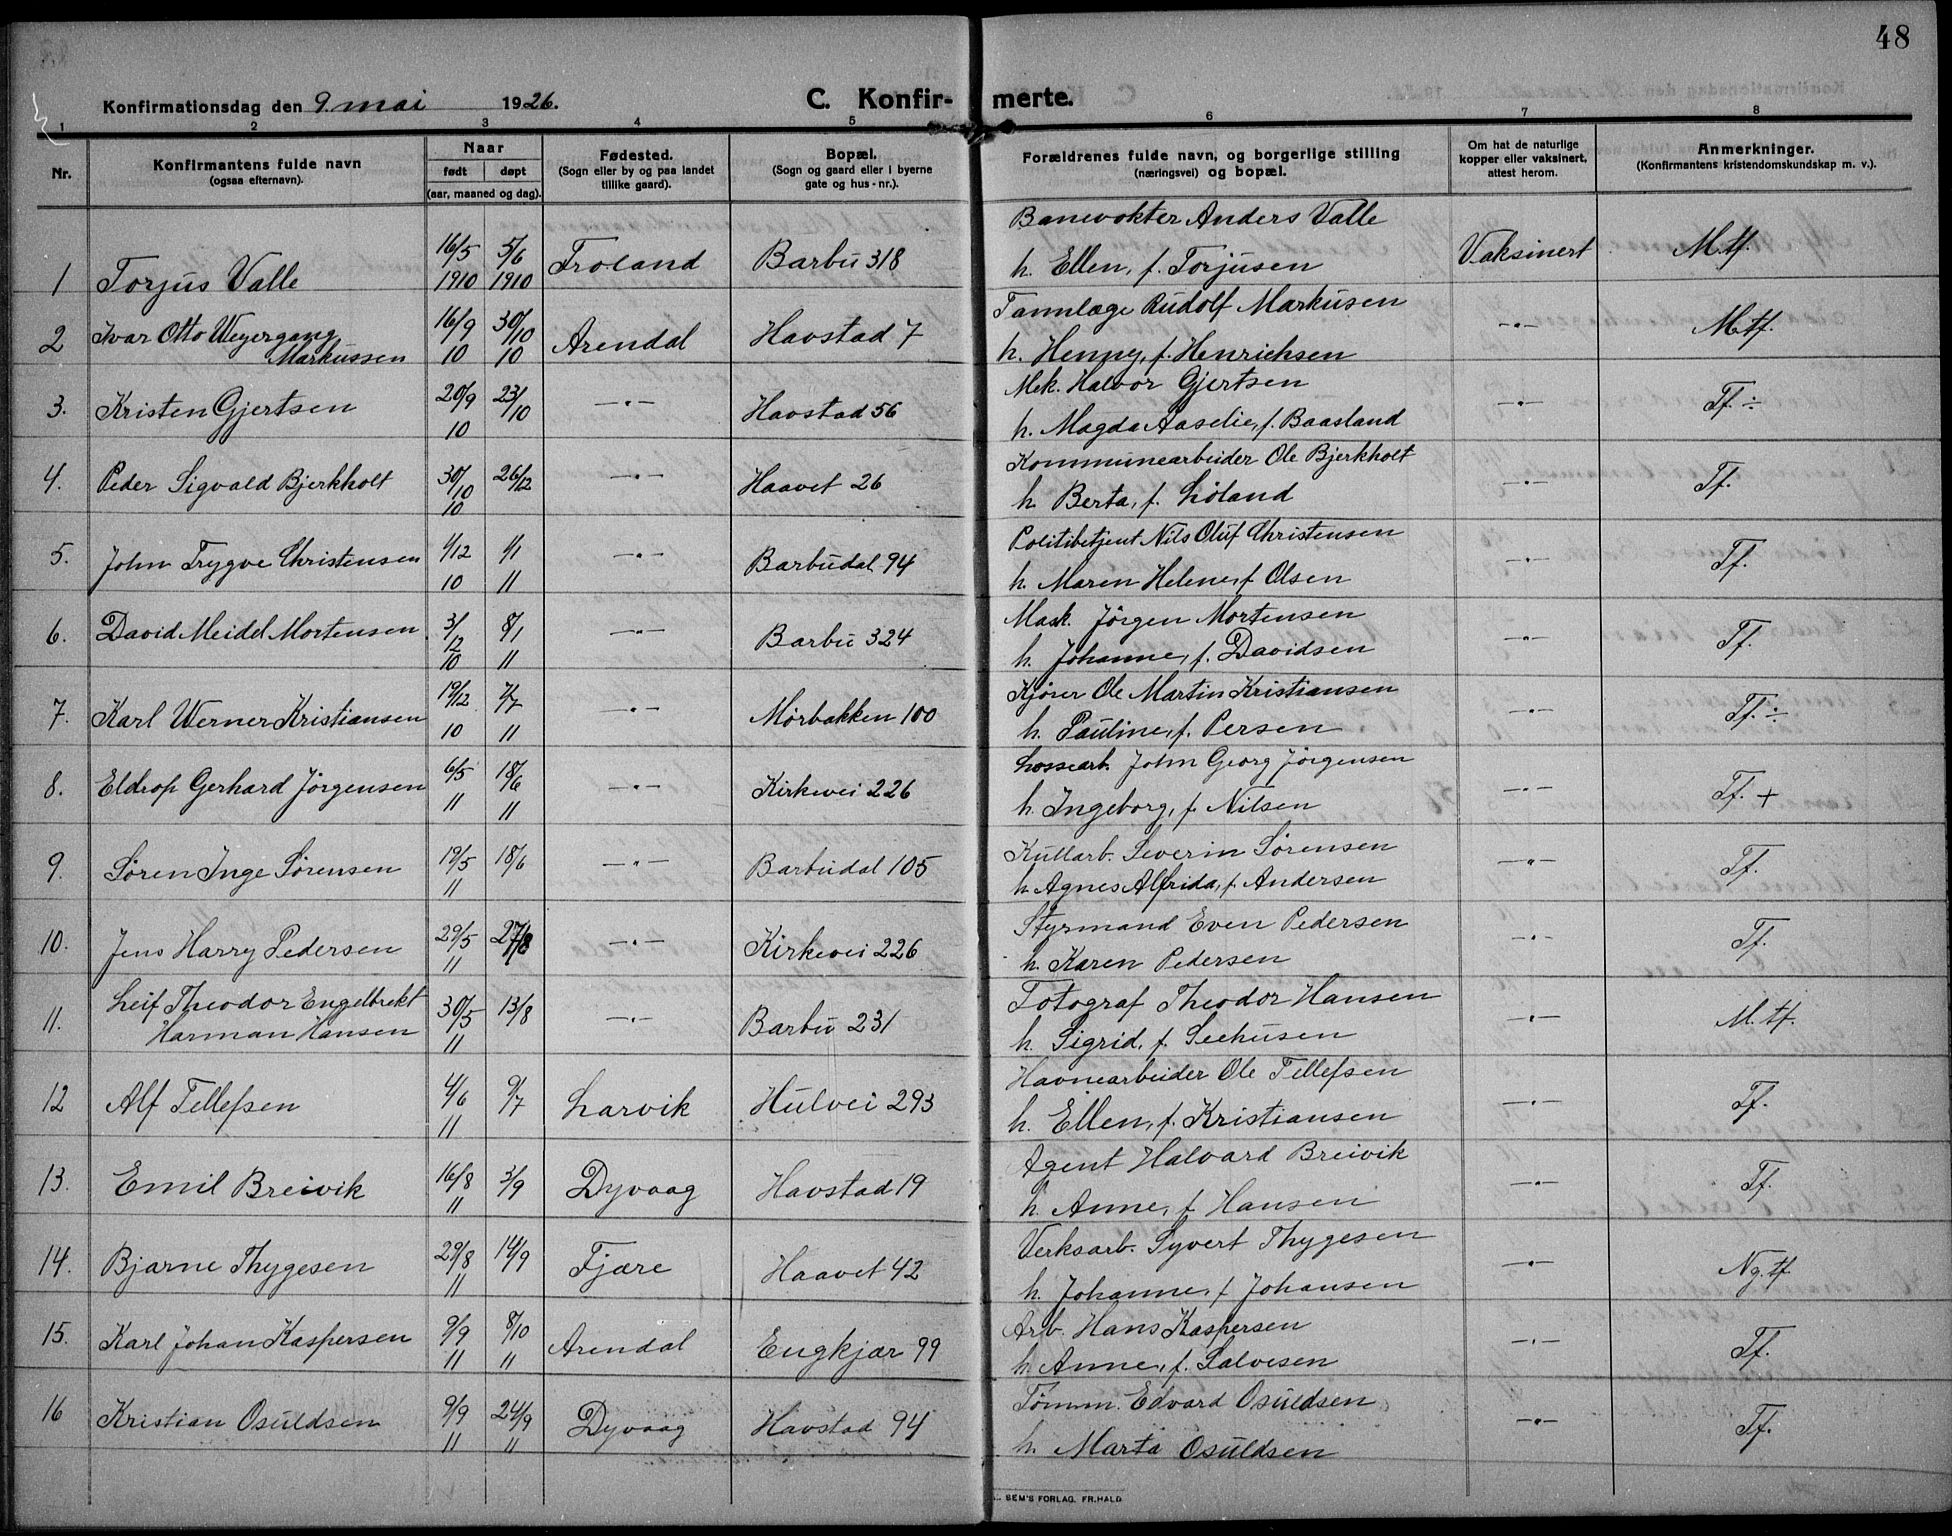 48
Konfirmationsdag den 9. mai 1926.
C. Konfirmerte.
1 2 3 4 5 6 7 8
Nr.
Konfirmantens fulde navn
(ogsaa efternavn).
Naar
født døpt
(aar, maaned og dag).
Fødested.
(Sogn eller by og paa landet
tillike gaard).
Bopæl.
(Sogn og gaard eller i byerne
gate og hus-nr.).
Forældrenes fulde navn, og borgerlige stilling
(næringsvei) og bopæl.
Om hat de naturlige
kopper eller vaksinert,
attest herom.
Anmerkninger.
(Konfirmantens kristendomskundskap m. v.).
Banevokter Anders Valle
1 Torjus Valle 16/5 1910 5/6 1910 Froland Barbu 318 h. Ellen, f. Torjusen Vaksinert M.tf.
Tannlæge Rudolf Markusen
2 Ivar Otto Weyergang Markussen 16/9 10 30/10 10 Arendal Havstad 7 h. Henny, f. Henrichsen —"— M.tf.
Mek. Halvor Gjertsen
3. Kristen Gjertsen 20/9 10 23/10 —"— Havstad 56 h. Magda Aaselie, f. Baasland —"— Tf. ÷
Kommunearbeider Ole Bjerkholt
4. Peder Sigvald Bjerkholt 30/10 10 26/12 —"— Haavet 26 h. Berta, f. Løland —"— Tf.
Politibetjent Nils Oluf Christensen
5. John Trygve Christensen 1/12 10 1/1 11 —"— Barbudal 94 h. Maren Helene, f. Olsen —"— Tf.
Mask. Jørgen Mortensen
6. David Meidel Mortensen 3/12 10 8/1 11 —"— Barbu 324 h. Johanne, f. Davidsen —"— Tf.
Kjører Ole Martin Kristiansen
7. Karl Werner Kristiansen 19/12 10 7/7 11 —"— Mørbakken 100 h. Pauline, f. Persen —"— Tf. ÷
Lossearb. John Georg Jørgensen
8. Eldrop Gerhard Jørgensen 6/5 11 18/6 11 —"— Kirkevei 226 h. Ingeborg, f. Nilsen —"— Tf. +
Kullarb. Severin Sørensen
9. Søren Inge Sørensen 19/5 11 18/6 —"— Barbudal 105 h. Agnes Alfrida, f. Andersen —"— Tf.
Styrmand Even Pedersen
10. Jens Harry Pedersen 29/5 11 27/8 —"— Kirkevei 226 h. Karen Pedersen —"— Tf.
Fotograf Theodor Hansen
11. Leif Theodor Engelbrekt Harman Hansen 30/5 11 13/8 —"— Barbu 231 h. Sigrid, f. Seehusen —"— M.tf.
Havnearbeider Ole Tellefsen
12 Alf Tellefsen 4/6 11 9/7 Larvik Hulvei 293 h. Ellen, f. Kristiansen —"— Tf.
Agent Halvard Breivik
13. Emil Breivik 16/8 11 3/9 Dyvaag Havstad 19 h. Anne, f. Hansen —"— Tf.
Verksarb. Syvert Thygesen
14. Bjarne Thygesen 29/8 11 14/9 Fjære Haavet 42 h. Johanne, f. Johansen —"— Ng.tf.
Arb. Hans Kaspersen
15. Karl Johan Kaspersen 9/9 11 8/10 11 Arendal Engkjær 99 h. Anne, f. Salvesen —"— Tf.
Tømm. Edvard Osuldsen
16 Kristian Osuldsen 9/9 11 24/9 11 Dyvaag Havstad 94 h. Marta Osuldsen —"— Tf.
SEM'S FORLAG. FR.HALD